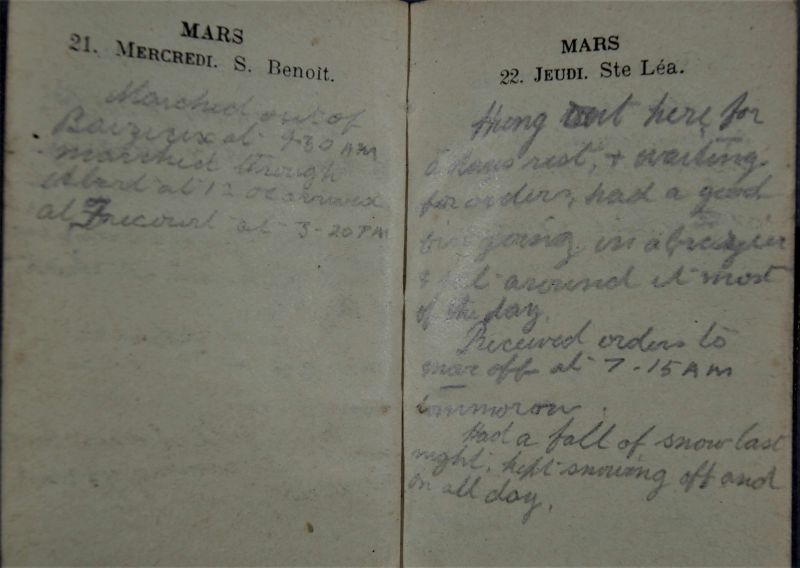 MARS
21. MERCREDI. S. Benoît.
Marched out of
Baizieux at 9-30 AM
marched through
Albert at 12 oc arrived
at Fricourt at 3-20 PM
MARS
22. JEUDI. Ste Léa.
Hung out here for
a days rest, + waiting
for orders, had a good
fire going in a brazier
& sat around it most
of the day.
Received orders to
move off at 7-15 AM
tommorow.
Had a fall of snow last
night, kept snowing off and
on all day.